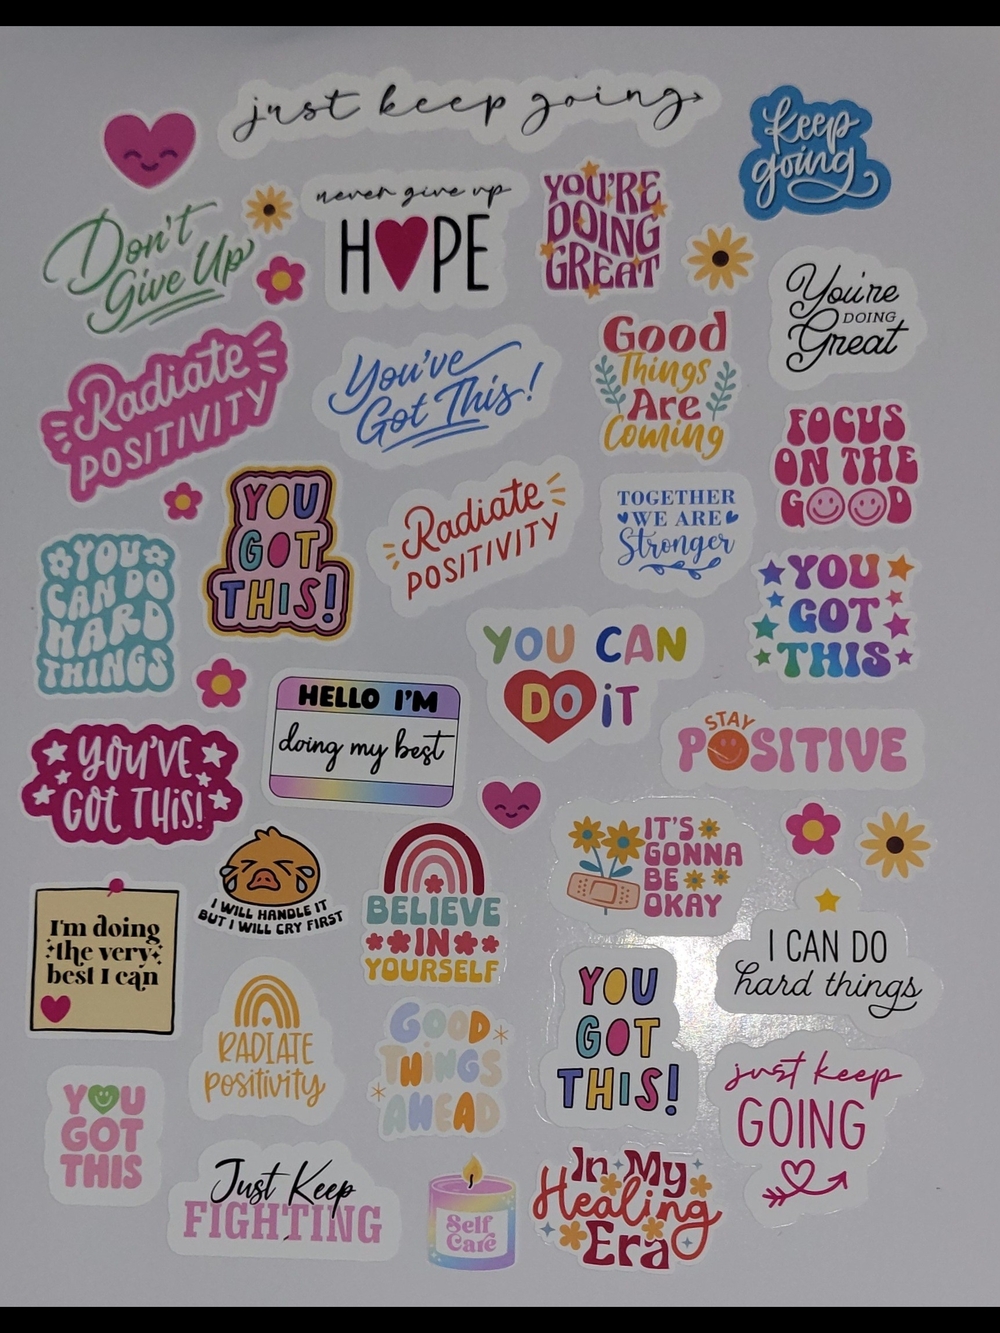 just keep going
keep
going
Don't
Give Up
never give up
HOPE
YOU'RE
DOING
GREAT
You're
DOING
Great
Radiate
POSITIVITY
You've
Got This!
Good
Things
Are
Coming
FOCUS
ON THE
GOOD
YOU
GOT
THIS!
Radiate
POSITIVITY
TOGETHER
WE ARE
Stronger
YOU
CAN DO
HARD
THINGS
YOU
GOT
THIS
YOU CAN
DO iT
HELLO I'M
doing my best
STAY
POSITIVE
YOU'VE
GOT THIS!
IT'S
GONNA
BE
OKAY
I WILL HANDLE IT
BUT I WILL CRY FIRST
BELIEVE
IN
YOURSELF
I'm doing
the very
best I can
I CAN DO
hard things
RADIATE
positivity
GOOD
THiNGS
AHEAD
YOU
GOT
THIS!
just keep
GOING
YOU
GOT
THIS
Just Keep
FIGHTING
Self
Care
In My
Healing
Era